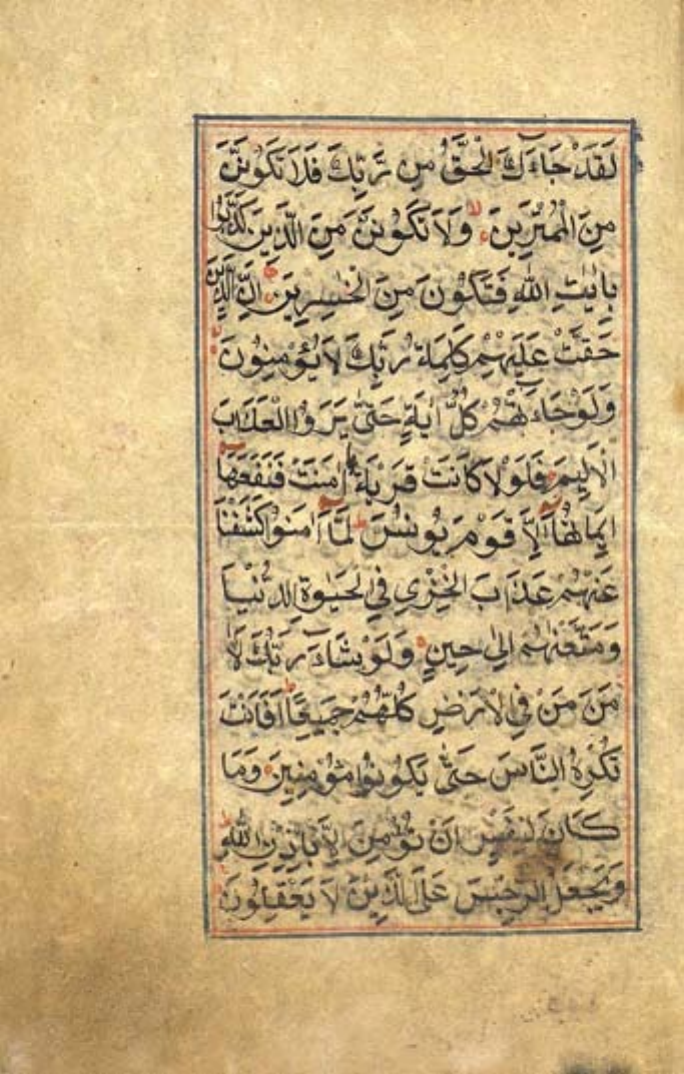 لَقَدْ جَاءَكَ الْحَقُّ مِن رَّبِّكَ فَلَا تَكُونَنَّ
مِنَ الْمُمْتَرِينَ وَلَا تَكُونَنَّ مِنَ الَّذِينَ كَذَّبُوا
بِاٰيٰتِ اللّٰهِ فَتَكُونَ مِنَ الْخٰسِرِينَ اِنَّ الَّذِينَ
حَقَّتْ عَلَيْهِمْ كَلِمَةُ رَبِّكَ لَا يُؤْمِنُونَ
وَلَوْ جَاءَتْهُمْ كُلُّ اٰيَةٍ حَتّٰى يَرَوُا الْعَذَابَ
الْاَلِيمَ فَلَوْلَا كَانَتْ قَرْيَةٌ اٰمَنَتْ فَنَفَعَهَا
اِيمَانُهَا اِلَّا قَوْمَ يُونُسَ لَمَّا اٰمَنُوا كَشَفْنَا
عَنْهُمْ عَذَابَ الْخِزْيِ فِي الْحَيٰوةِ الدُّنْيَا
وَمَتَّعْنٰهُمْ اِلٰى حِينٍ وَلَوْ شَاءَ رَبُّكَ لَاٰ
مَنَ مَنْ فِي الْاَرْضِ كُلُّهُمْ جَمِيعًا اَفَاَنْتَ
تُكْرِهُ النَّاسَ حَتّٰى يَكُونُوا مُؤْمِنِينَ وَمَا
كَانَ لِنَفْسٍ اَنْ تُؤْمِنَ اِلَّا بِاِذْنِ اللّٰهِ
وَيَجْعَلُ الرِّجْسَ عَلَى الَّذِينَ لَا يَعْقِلُونَ